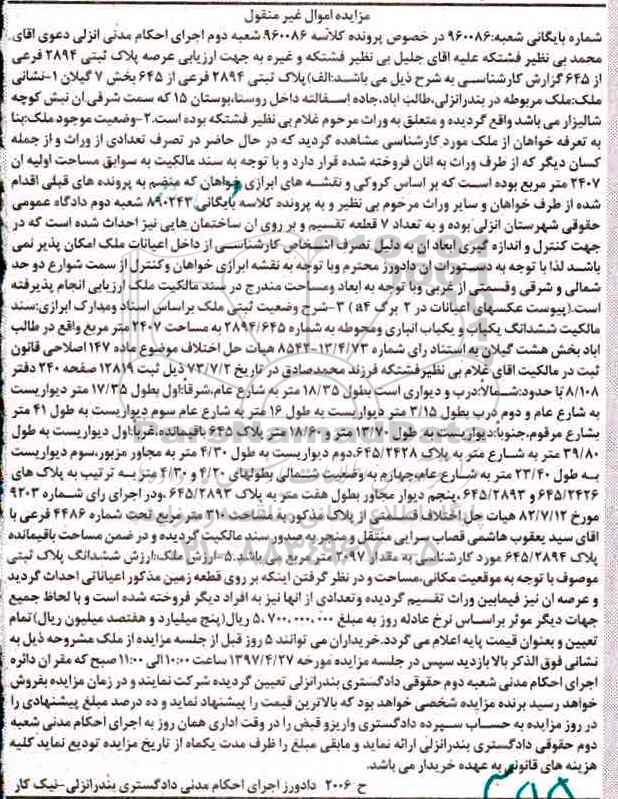 مزایده اموال غیر منقول
شماره بایگانی شعبه:۹۶۰۰۸۶ در خصوص پرونده کلاسه ۹۶۰۰۸۶ شعبه دوم اجرای احکام مدنی انزلی دعوی اقای
محمد بی نظیر فشتکه علیه اقای جلیل بی نظیر فشتکه و غیره به جهت ارزیابی عرصه پلاک ثبتی ۲۸۹۴ فرعی
از ۶۴۵ گزارش کارشناسی به شرح ذیل می باشد:الف)پلاک ثبتی ۲۸۹۴ فرعی از ۶۴۵ بخش ۷ گیلان ۱-نشانی
ملک:ملک مربوطه در بندرانزلی،طالب اباد،جاده اسفالته داخل روستا،بوستان ۱۵ که سمت شرقی.ان نبش کوچه
شالیزار می باشد واقع گردیده و متعلق به وراث مرحوم غلام بی نظیر فشتکه بوده است.۲-وضعیت موجود ملک:بنا
به تعرفه خواهان از ملک مورد کارشناسی مشاهده گردید که در حال حاضر در تصرف تعدادی از وراث و از جمله
کسان دیگر که از طرف وراث به انان فروخته شده قرار دارد و با توجه به سند مالکیت به سوابق مساحت اولیه ان
۲۴۰۷ متر مربع بوده است که بر اساس کروکی و نقشه های ابرازی خواهان که منضم به پرونده های قبلی اقدام
شده از طرف خواهان و سایر وراث مرحوم بی نظیر و به پرونده کلاسه بایگانی ۸۹۰۲۴۳ شعبه دوم دادگاه عمومی
حقوقی شهرستان انزلی بوده و به تعداد ۷ قطعه تقسیم و بر روی ان ساختمان هایی نیز احداث شده است که در
جهت کنترل و اندازه گیری ابعاد ان به دلیل تصرف اشخاص کارشناسی از داخل اعیانات ملک امکان پذیر نمی
باشد لذا با توجه به دستورات ان دادورز محترم وبا توجه به نقشه ابرازی خواهان وکنترل از سمت شوارع دو حد
شمالی و شرقی وقسمتی از غربی وبا توجه به ابعاد ومساحت مندرج در سند مالکیت ملک ارزیابی انجام پذیرفته
است.(پیوست عکسهای اعیانات در ۲ برگ a۴) ۳-شرح وضعیت ثبتی ملک براساس اسناد ومدارک ابرازی:سند
مالکیت ششدانگ یکباب و یکباب انباری ومحوطه به شماره ۲۸۹۴/۶۴۵ به مساحت ۲۴۰۷ متر مربع واقع در طالب
اباد بخش هشت گیلان به استناد رای شماره ۸۵۴۲-۱۳/۴/۷۳ هیات حل اختلاف موضوع ماده ۱۴۷ اصلاحی قانون
ثبت در مالکیت اقای غلام بی نظیرفشتکه فرزند محمدصادق در تاریخ ۷۳/۷/۲ ذیل ثبت ۱۲۸۱۹ صفحه ۲۴۰ دفتر
۸/۱۰۸ با حدود:شمالاً:درب و دیواری است بطول ۱۸/۳۵ متر به شارع عام،شرقاً:اول بطول ۱۷/۳۵ متر دیواریست
به شارع عام و دوم درب بطول ۳/۱۵ متر دیواریست به طول ۱۶ متر به شارع عام سوم دیواریست به طول ۴۱ متر
بشارع مرقوم.جنوباً:دیواریست به طول ۱۳/۷۰ متر و ۱۸/۶۰ متر پلاک ۶۴۵ باقیمانده.غرباً:اول دیواریست به طول
۳۹/۸۰ متر به شارع متر به پلاک ۶۴۵/۲۴۲۸،دوم دیواریست به طول ۴/۳۰ متر به مجاور مزبور،سوم دیواریست
به طول ۲۳/۴۰ متر به شارع عام،چهارم به وضعیت شمالی بطولهای ۴/۲۰ و ۴/۳۰ متر به ترتیب به پلاک های
۶۴۵/۲۴۲۶ و ۶۴۵/۲۸۹۳ ،پنجم دیوار مجاور بطول هفت متر به پلاک ۶۴۵/۲۸۹۳ ،ودر اجرای رای شماره ۹۲۰۳
مورخ ۸۲/۷/۱۲ هیات حل اختلاف قسمتی از پلاک مذکور به مساحت ۳۱۰ متر مربع تحت شماره ۴۴۸۶ فرعی با
اقای سید یعقوب هاشمی قصاب سرایی منتقل و منجر به صدور سند مالکیت گردیده و در ضمن مساحت باقیمانده
پلاک ۶۴۵/۲۸۹۴ مورد کارشناسی به مقدار ۲۰۹۷ متر مربع می باشد.۵-ارزش ملک:ارزش ششدانگ پلاک ثبتی
موصوف با توجه به موقعیت مکانی،مساحت و در نظر گرفتن اینکه بر روی قطعه زمین مذکور اعیاناتی احداث گردید
و عرصه ان نیز فیمابین وراث تقسیم گردیده وتعدادی از انها نیز به افراد دیگر فروخته شده است و با لحاظ جمیع
جهات دیگر موثر براساس نرخ عادله روز به مبلغ ۵،۷۰۰،۰۰۰،۰۰۰ ریال(پنج میلیارد و هفتصد میلیون ریال)تمام
تعیین و بعنوان قیمت پایه اعلام می گردد.خریداران می توانند ۵ روز قبل از جلسه مزایده از ملک مشروحه ذیل به
نشانی فوق الذکر بالا بازدید سپس در جلسه مزایده مورخه ۱۳۹۷/۴/۲۷ ساعت ۱۰:۰۰الی ۱۱:۰۰ صبح که مقر ان دائره
اجرای احکام مدنی شعبه دوم حقوقی دادگستری بندرانزلی تعیین گردیده شرکت نمایند و در زمان مزایده بفروش
خواهد رسید برنده مزایده شخصی خواهد بود که بالاترین قیمت را پیشنهاد نماید و ده درصد مبلغ پیشنهادی را
در روز مزایده به حساب سپرده دادگستری واریزو قبض را در وقت اداری همان روز به اجرای احکام مدنی شعبه
دوم حقوقی دادگستری بندرانزلی ارائه نماید و مابقی مبلغ را ظرف مدت یکماه از تاریخ مزایده تودیع نماید کلیه
هزینه های قانونی به عهده خریدار می باشد.
ح ۲۰۰۶ دادورز اجرای احکام مدنی دادگستری بندرانزلی-نیک کار